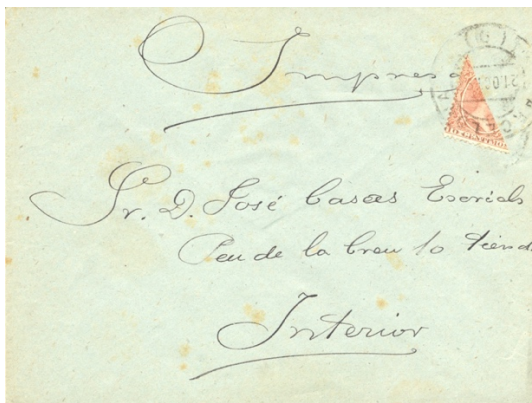 Impreso
Sr. D. José Casas Escrichs
Peu de la Creu 10 tiend
Interior
10 CENTIMO